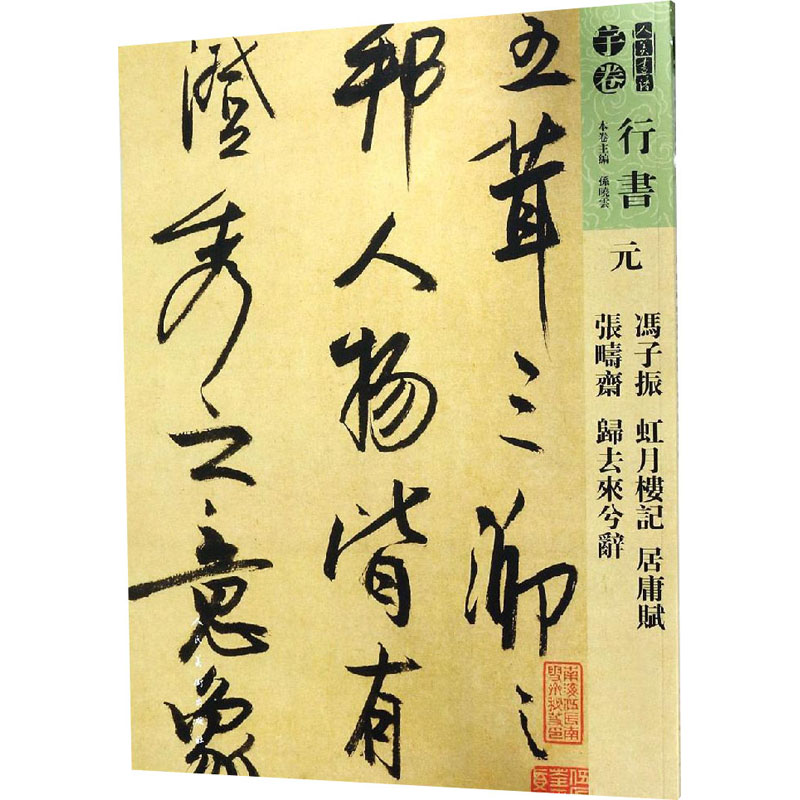 人美書譜
宇卷
行書
本卷主編 孫曉雲
元
馮子振 虹月樓記 居庸賦
張疇齋 歸去來兮辭
五茸三泖之
邦人物皆有
澄秀之意象